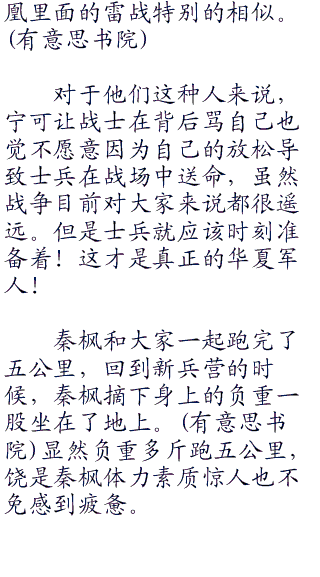 凰里面的雷战特别的相似。
(有意思书院)
对于他们这种人来说，
宁可让战士在背后骂自己也
觉不愿意因为自己的放松导
致士兵在战场中送命，虽然
战争目前对大家来说都很遥
远。但是士兵就应该时刻准
备着！这才是真正的华夏军
人！
秦枫和大家一起跑完了
五公里，回到新兵营的时
候，秦枫摘下身上的负重一
股坐在了地上。(有意思书
院)显然负重多斤跑五公里，
饶是秦枫体力素质惊人也不
免感到疲惫。